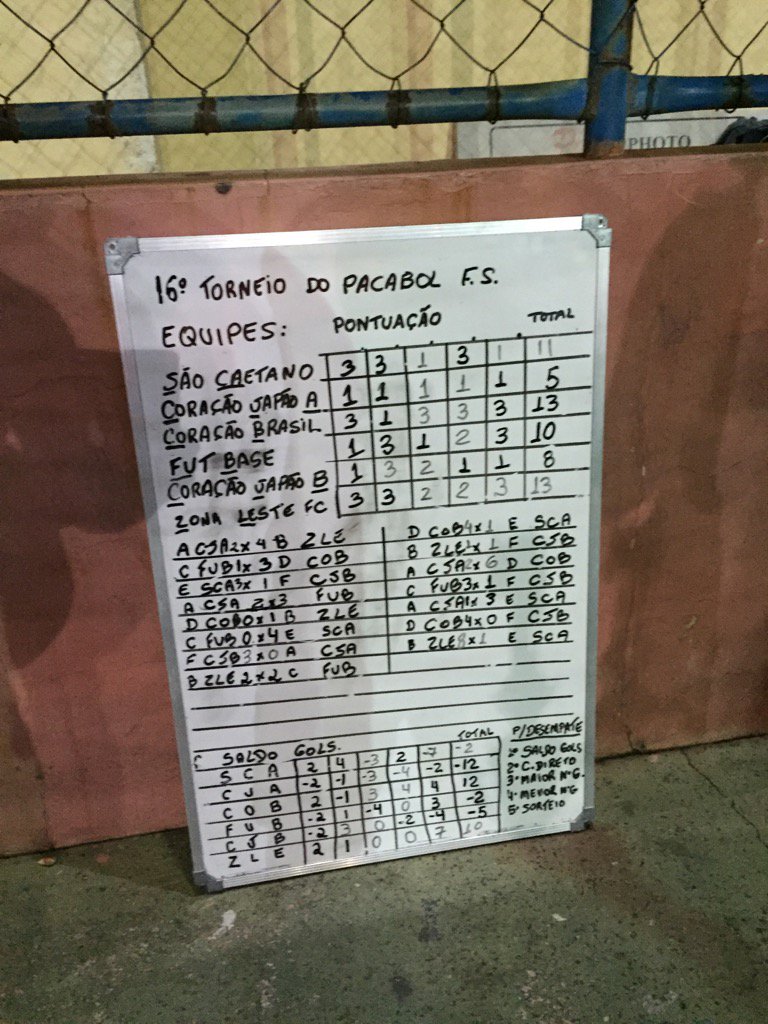 PHOTO
16º TORNEIO DO PACABOL F.S.
EQUIPES: PONTUAÇÃO TOTAL
SÃO CAETANO 3 3 1 3 1 11
CORAÇÃO JAPÃO A 1 1 1 1 1 5
CORAÇÃO BRASIL 3 1 3 3 3 13
FUT BASE 1 3 1 2 3 10
CORAÇÃO JAPÃO B 1 3 2 1 1 8
ZONA LESTE FC 3 3 2 2 3 13
A CJA 2 x 4 B ZLE
C FUB 1 x 3 D COB
E SCA 3 x 1 F CJB
A CJA 2 x 3 FUB
D COB 0 x 1 B ZLE
C FUB 0 x 4 E SCA
F CJB 3 x 0 A CJA
B ZLE 2 x 2 C FUB
D COB 4 x 1 E SCA
B ZLE 1 x 1 F CJB
A CJA 2 x 6 D COB
C FUB 3 x 1 F CJB
A CJA 1 x 3 E SCA
D COB 4 x 0 F CJB
B ZLE 8 x 1 E SCA
SALDO GOLS. TOTAL
S C A 2 4 -3 2 -7 -2
C J A -2 -1 -3 -4 -2 -12
C O B 2 -1 3 4 4 12
F U B -2 1 -4 0 3 -2
C J B -2 3 0 -2 -4 -5
Z L E 2 1 0 0 7 10
P/DESEMPATE
1º SALDO GOLS
2º C. DIRETO
3º MAIOR Nº G.
4º MENOR Nº G
5º SORTEIO